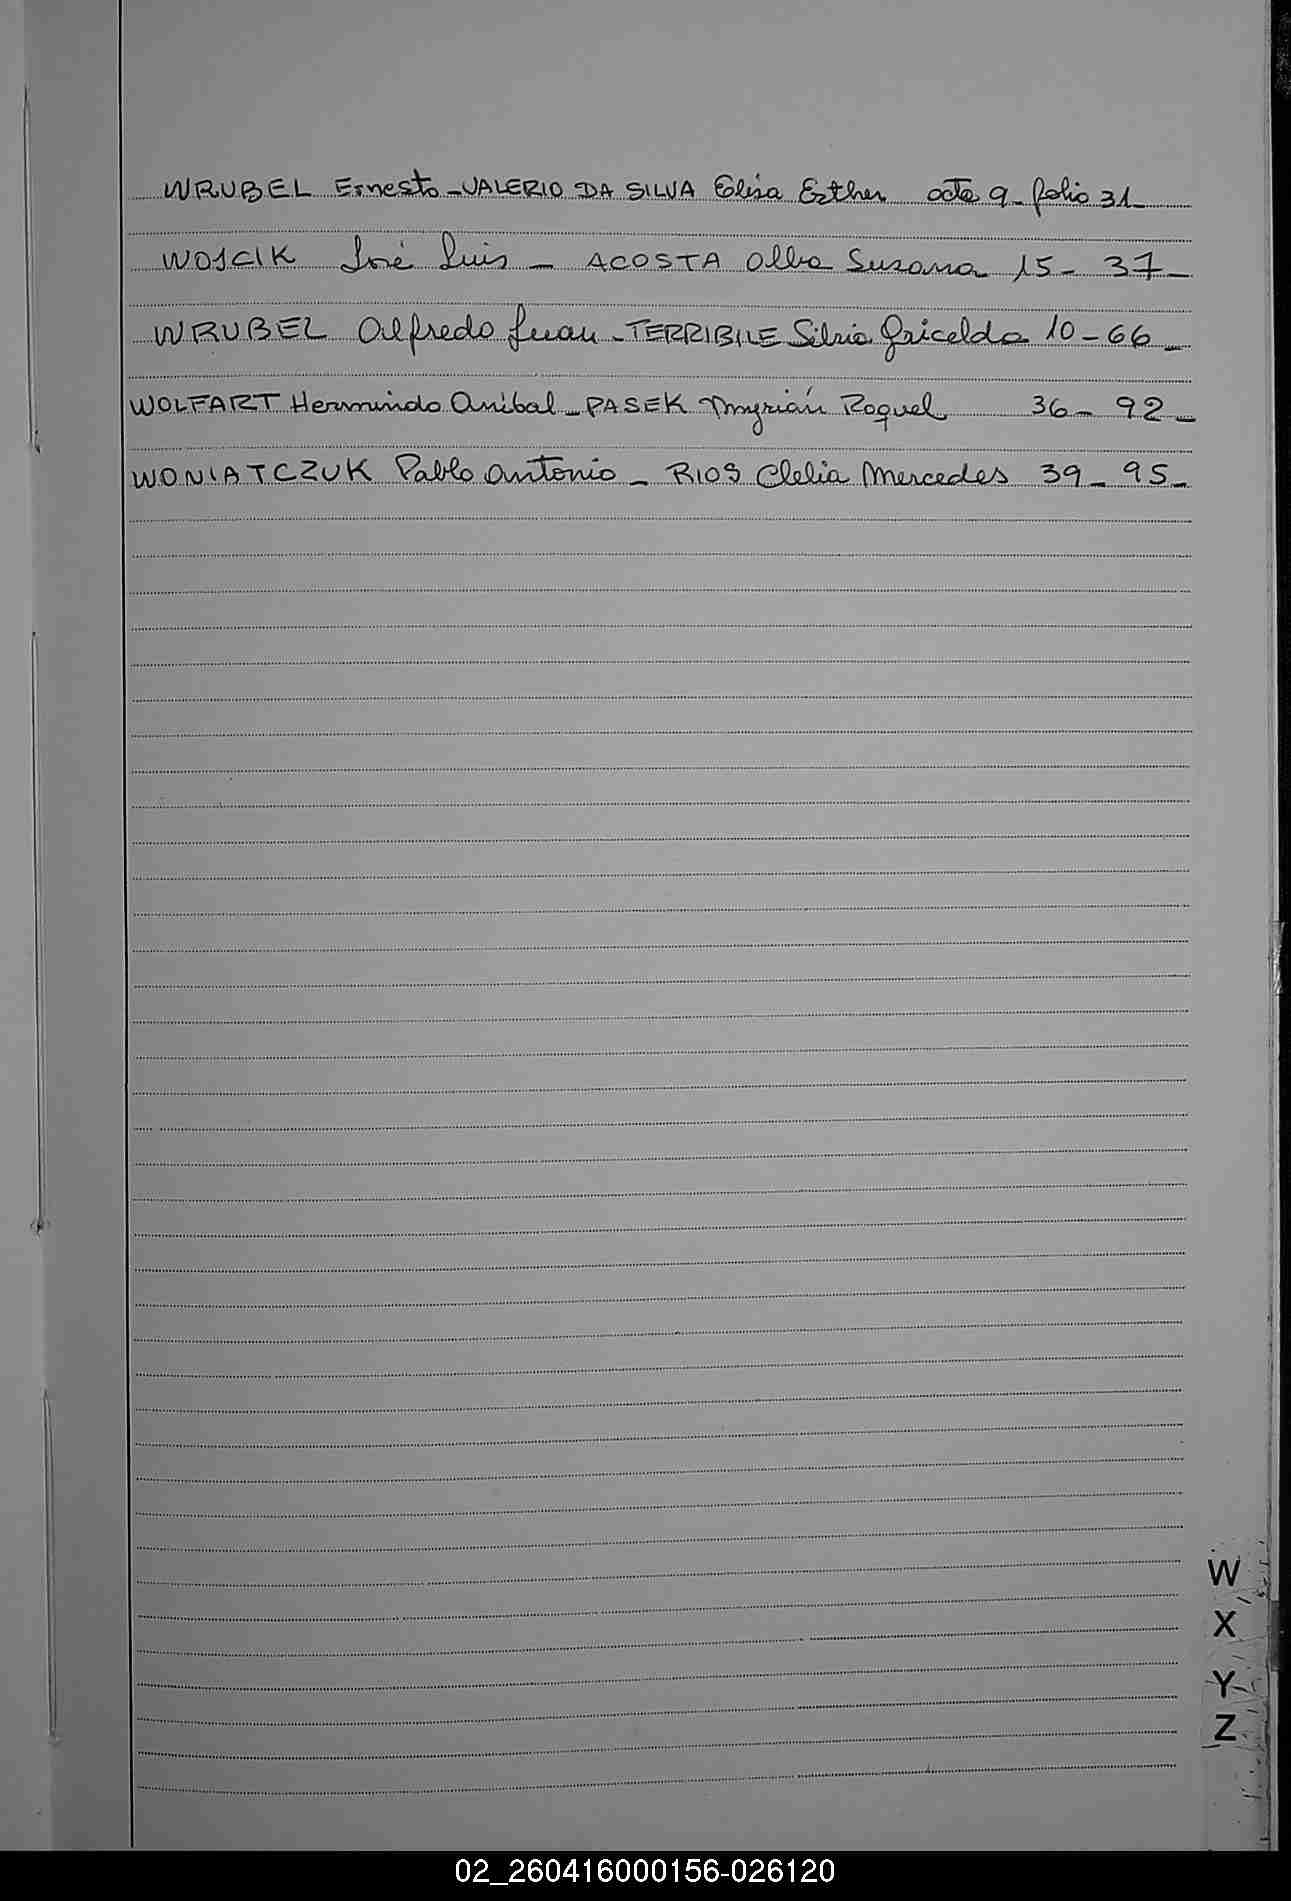 WRUBEL Ernesto - VALERIO DA SILVA Elisa Esther acta 9 - folio 31 -
WOJCIK José Luis - ACOSTA Alba Susana 15 - 37 -
WRUBEL Alfredo Juan - TERRIBILE Silvia Gricelda 10 - 66 -
WOLFART Hermindo Anibal - PASEK Myrián Raquel 36 - 92 -
WONIATCZUK Pablo Antonio - RIOS Clelia Mercedes 39 - 95 -
W
X
Y
Z
02_260416000156-026120